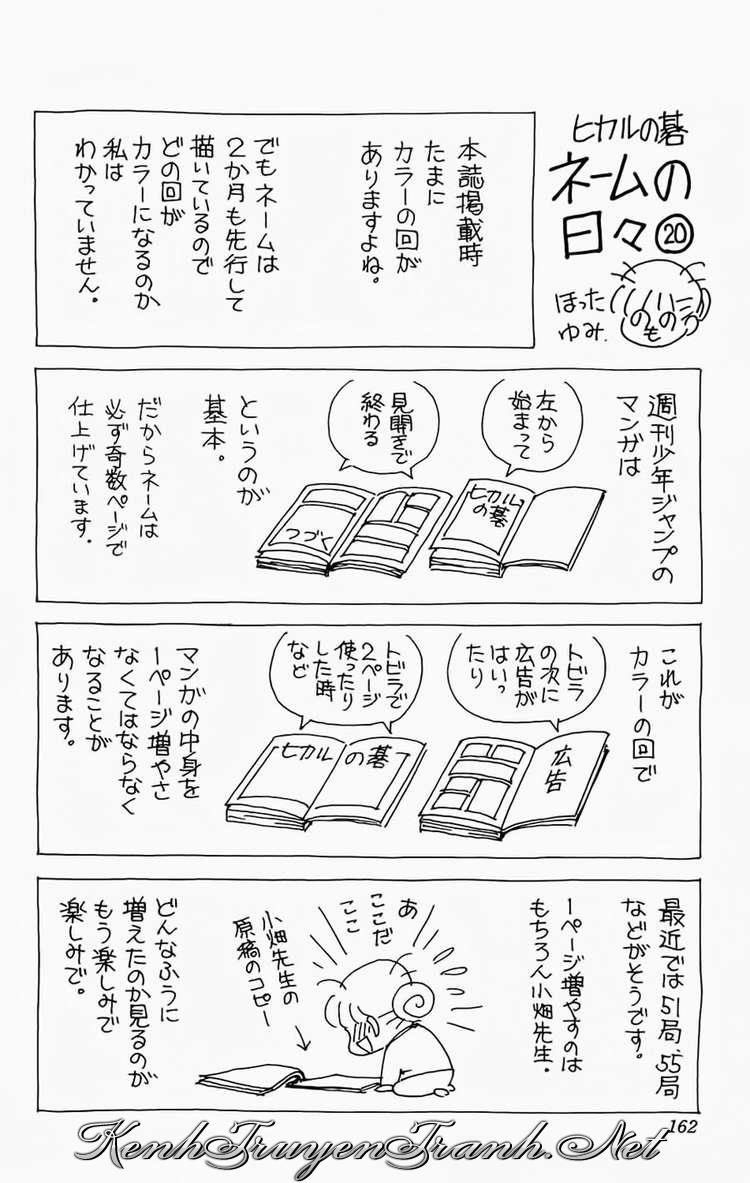 ヒカルの碁
ネームの
日々⑳
ほった
ゆみ.
本誌掲載時
たまに
カラーの回が
ありますよね。
でもネームは
2か月も先行して
描いているので
どの回が
カラーになるのか
私は
わかっていません。
週刊少年ジャンプの
マンガは
左から
始まって
見開きで
終わる
ヒカル
の碁
つづく
というのが
基本。
だからネームは
必ず奇数ページで
仕上げています.
これが
カラーの回で
トビラ
の次に
広告が
はいっ
たり
広告
トビラで
2ページ
使ったり
した時
など
ヒカル の碁
マンガの中身を
1ページ増やさ
なくてはならなく
なることが
あります。
最近では51局、55局
などがそうです。
1ページ増やすのは
もちろん小畑先生.
あ
ここだ
ここ
小畑先生の
原稿のコピー
どんなふうに
増えたのか見るのが
もう楽しみで
楽しみで。
162
KenhTruyenTranh.Net